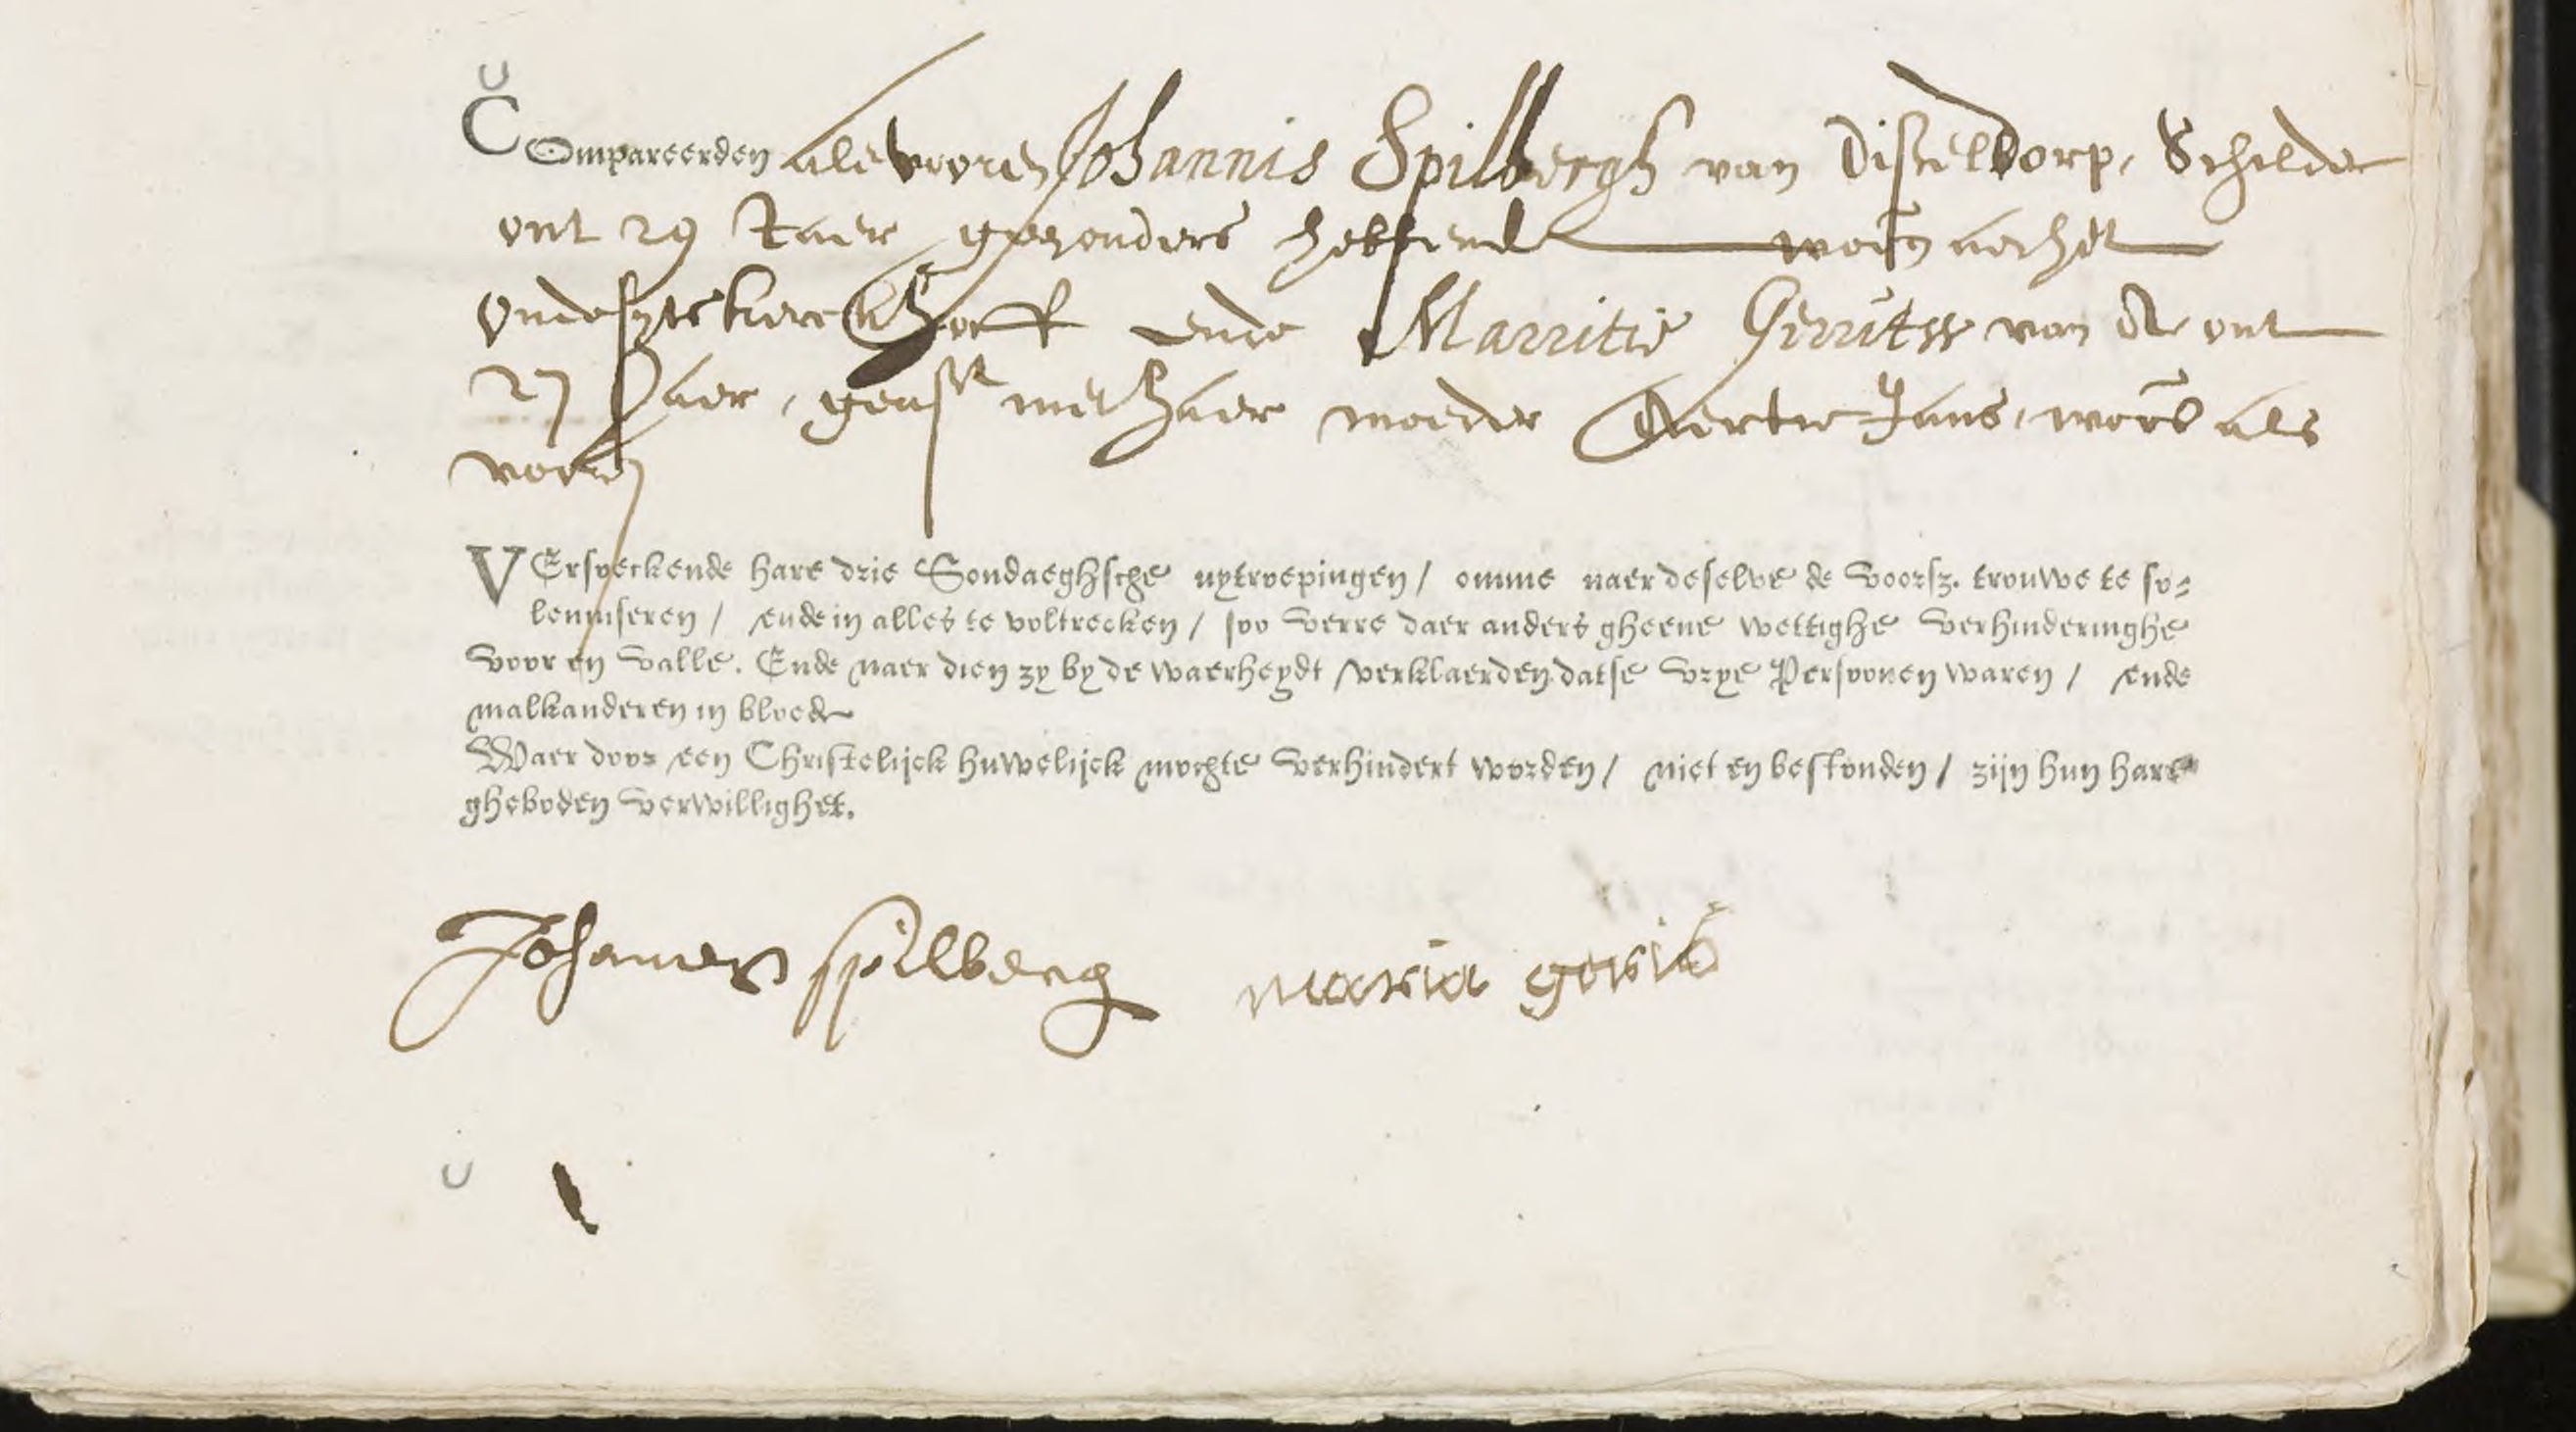 Compareerden als vooren Johannis Spilbergh van Disseldorp, Schilder
out 29 Jaer geen ouders hebbend won aen het
oudezyts kerckhoff ende Marritie Gerrits van A out
27 Jaer, geast met haer moeder Aertie Jans, won als
vooren
VErsoeckende hare drie Sondaeghsche uytroepingen / omme naer deselve de voorsz. trouwe te so-
lemniseren / ende in alles te voltrecken / soo verre daer anders gheene wettighe verhinderinghe
voor en valle. Ende naer dien zy by de waerheydt verklaerden datse vrye Persoonen waren / ende
malkanderen in bloede
Waer door een Christelijck huwelijck mochte verhindert worden / niet en bestonden / zijn hun hare
gheboden verwillighet.
Johannes spilberg maria